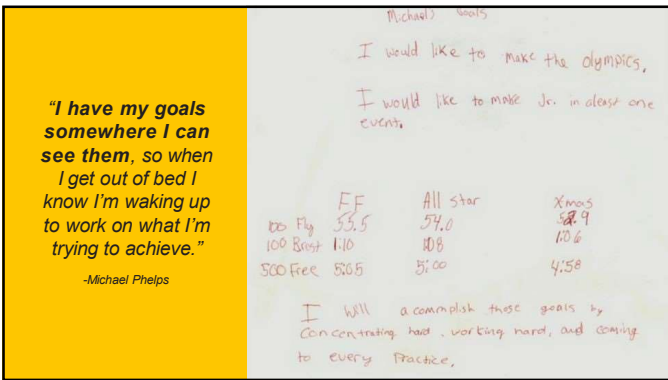 "I have my goals
somewhere I can
see them, so when
I get out of bed I
know I'm waking up
to work on what I'm
trying to achieve."
-Michael Phelps
Michaels Goals
I would like to make the olympics.
I would like to make Jr. in aleast one
event.
FF All Star Xmas
100 Fly 55.5 54.0 52.9
100 Brest 1:10 108 1:06
500 Free 5:05 5:00 4:58
I will accomplish these goals by
concentrating hard, working hard, and coming
to every Practice.